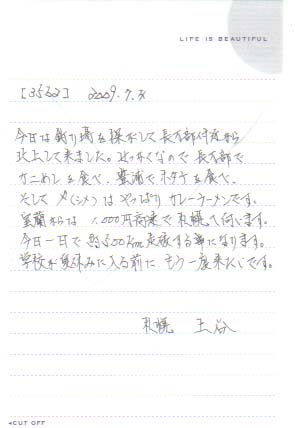 LIFE IS BEAUTIFUL
[3522] 2009.7.
今日は釣り場を探がして長万部付近から
北上して来ました。せっかくなので長万部で
カニめしを食べ、豊浦でホタテを食べ、
そして〆(シメ)はやっぱりカレーラーメンです。
室蘭からは1,000円高速で札幌へ向います。
今日一日で約500Km走破する事になります。
学校が夏休みに入る前にもう一度来たいです。
札幌 玉谷
◂CUT OFF